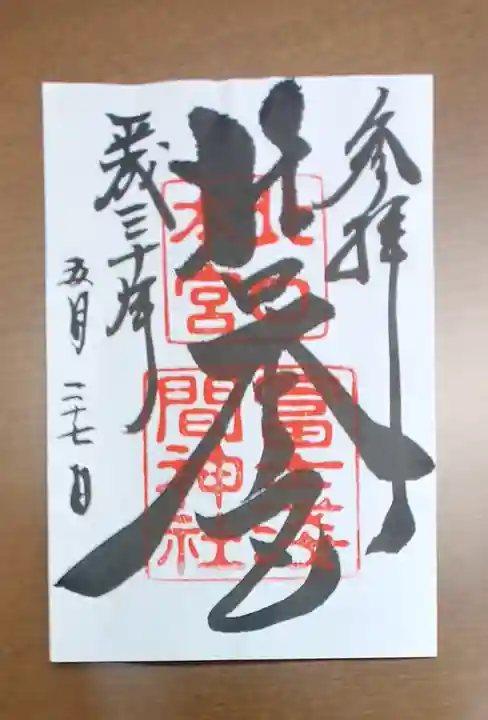 参拝
北口本宮
北口
本宮
冨士淺
間神社
平成三十年
五月二十七日